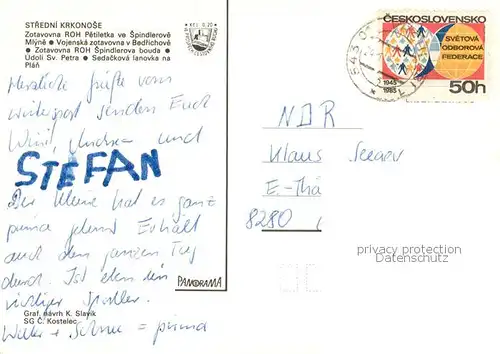 STŘEDNÍ KRKONOŠE
Zotavovna ROH Pětiletka ve Špindlerově
Mlýně • Vojenská zotavovna v Bedřichově
• Zotavovna ROH Špindlerova bouda •
Údolí Sv. Petra • Sedačková lanovka na
Pláň
Kčs 0,20
ČESKOSLOVENSKO
SVĚTOVÁ
ODBOROVÁ
FEDERACE
1945
1985
50h
543 0
Herzliche Grüße vom
Wintersport senden Euch
und
STEFAN
Der Kleine hat es ganz
prima
auch den ganzen Tag
durch. Ist eben ein
richtiger Sportler.
Wetter + Schnee = prima
PANORAMA
Graf. návrh K. Slavík
SG Č. Kostelec
NDR
Klaus
E.-Thä
8280
privacy protection
Datenschutz